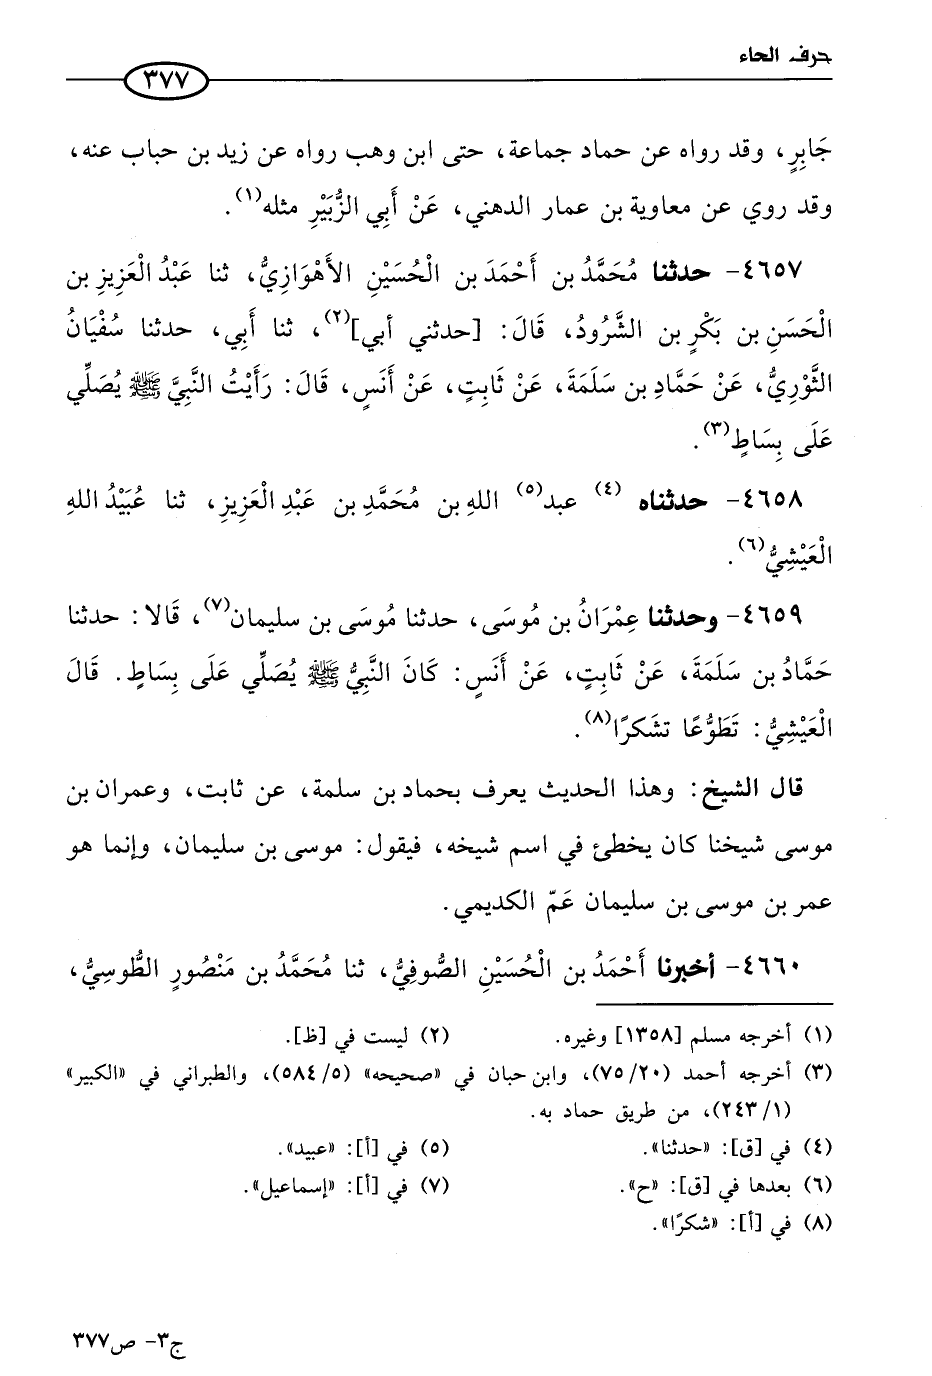 حرف الحاء
٣٧٧
جَابِرٍ، وقد رواه عن حماد جماعة، حتى ابن وهب رواه عن زيد بن حباب عنه،
وقد روي عن معاوية بن عمار الدهني، عَنْ أَبِي الزُّبَيْرِ مثله(١).
٤٦٥٧- حدثنا مُحَمَّدُ بن أَحْمَدَ بن الْحُسَيْنِ الأَهْوَازِيُّ، ثنا عَبْدُ الْعَزِيزِ بن
الْحَسَنِ بن بَكْرِ بن الشَّرُودُ، قَالَ: [حدثني أبي](٢)، ثنا أَبِي، حدثنا سُفْيَانُ
الثَّوْرِيُّ، عَنْ حَمَّادِ بن سَلَمَةَ، عَنْ ثَابِتٍ، عَنْ أَنَسٍ، قَالَ: رَأَيْتُ النَّبِيَّ ﷺ يُصَلِّي
عَلَى بِسَاطٍ(٣).
٤٦٥٨- حدثناه (٤) عبد(٥) اللهِ بن مُحَمَّدِ بن عَبْدِ الْعَزِيزِ، ثنا عُبَيْدُ اللهِ
الْعَيْشِيُّ(٦).
٤٦٥٩- وحدثنا عِمْرَانُ بن مُوسَى، حدثنا مُوسَى بن سليمان(٧)، قَالا: حدثنا
حَمَّادُ بن سَلَمَةَ، عَنْ ثَابِتٍ، عَنْ أَنَسٍ: كَانَ النَّبِيُّ ﷺ يُصَلِّي عَلَى بِسَاطٍ. قَالَ
الْعَيْشِيُّ: تَطَوُّعًا تشَكرًا(٨).
قال الشيخ: وهذا الحديث يعرف بحماد بن سلمة، عن ثابت، وعمران بن
موسى شيخنا كان يخطئ في اسم شيخه، فيقول: موسى بن سليمان، وإنما هو
عمر بن موسى بن سليمان عَمّ الكديمي.
٤٦٦٠- أخبرنا أَحْمَدُ بن الْحُسَيْنِ الصُّوفِيُّ، ثنا مُحَمَّدُ بن مَنْصُورٍ الطُّوسِيُّ،
(١) أخرجه مسلم [١٣٥٨] وغيره. (٢) ليست في [ظ].
(٣) أخرجه أحمد (٧٥/٢٠)، وابن حبان في «صحيحه» (٥٨٤/٥)، والطبراني في «الكبير»
(٢٤٣/١)، من طريق حماد به.
(٤) في [ق]: «حدثنا». (٥) في [أ]: «عبيد».
(٦) بعدها في [ق]: «ح». (٧) في [أ]: «إسماعيل».
(٨) في [أ]: «شكرًا».
ج٣- ص٣٧٧